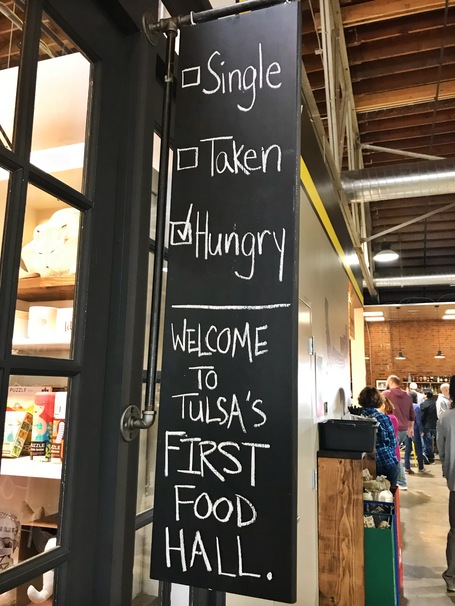 ☐ Single
☐ Taken
☑ Hungry
WELCOME
TO
TULSA'S
FIRST
FOOD
HALL.
PUZZLE